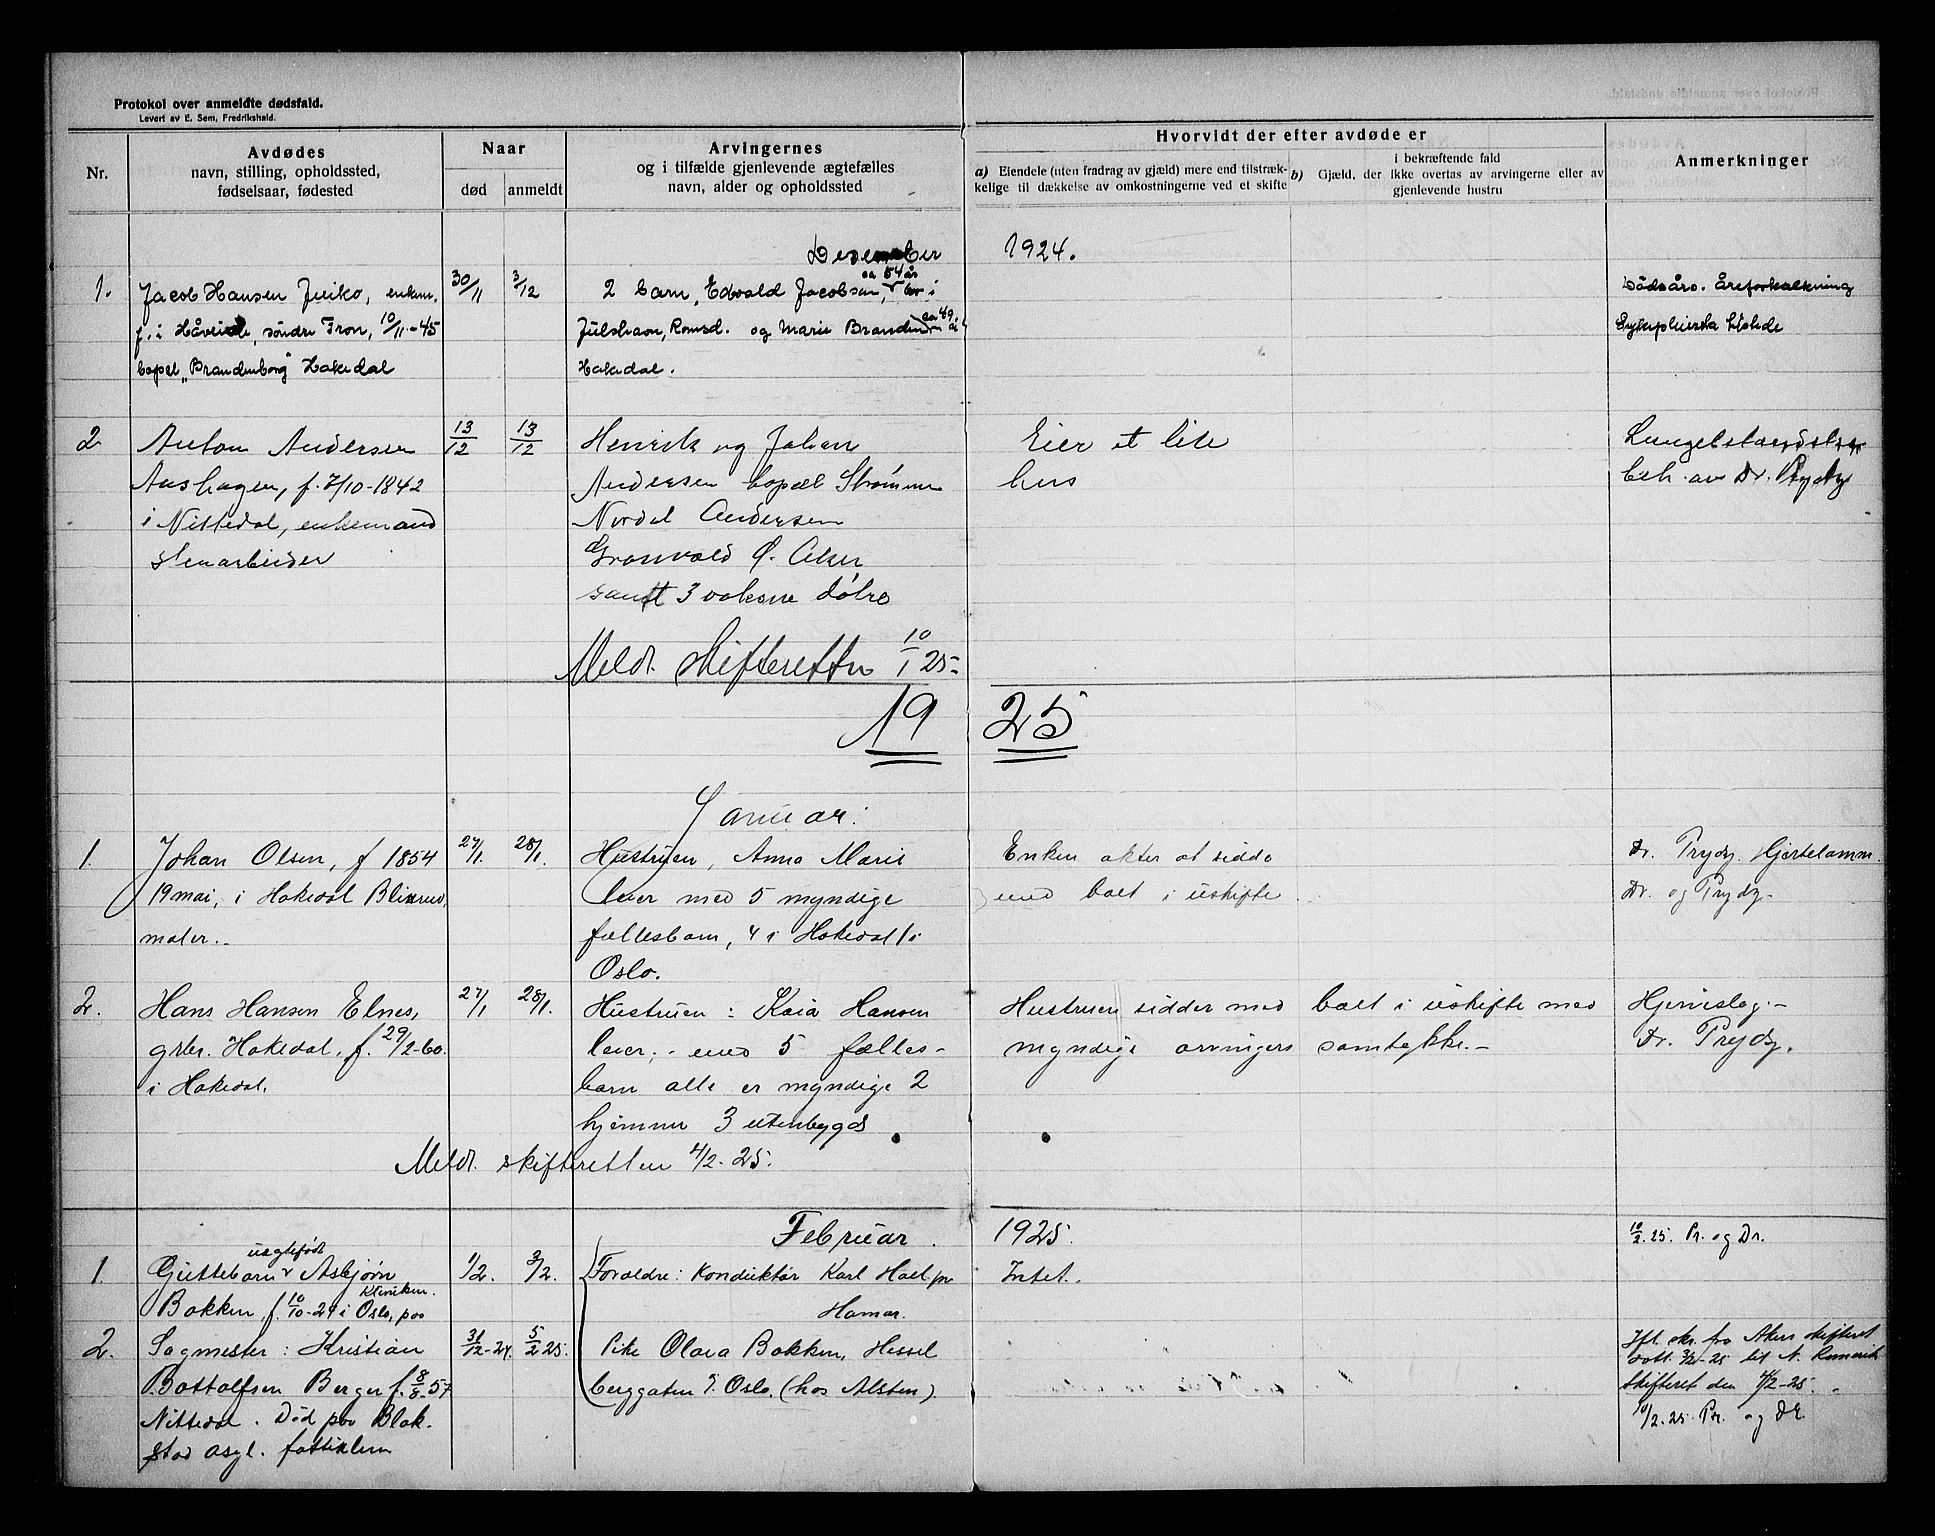 Protokol over anmeldte dødsfald.
Levert av E. Sem, Fredrikshald.
Nr.
Avdødes
navn, stilling, opholdssted,
fødselsaar, fødested
Naar
død
anmeldt
Arvingernes
og i tilfælde gjenlevende ægtefælles
navn, alder og opholdssted
Hvorvidt der efter avdøde er
a) Eiendele (uten fradrag av gjæld) mere end tilstræk-
kelige til dækkelse av omkostningerne ved et skifte
b) Gjæld, der i bekræftende fald
ikke overtas av arvingerne eller av
gjenlevende hustru
Anmerkninger
Desember 1924.
1. Jacob Hansen enkem.
f. i søndre Fron, 10/11-45
bopel "Brandenborg" Hakedal
30/11
3/12
ca 54 år
2 barn, Edvald Jacobsen, bor i
Julshavn, Romsd. og Marie Branden ca 49 år
Hakedal.
Dødsårs. Åreforkalkning
2 Anton Andersen
Aashagen, f. 7/10-1842
i Nittedal, enkemand
stenarbeider
13/12
13/12
Henrik og Johan
Andersen bopæl Strømmen
Nordal Andersen
Grønvold Ø. Aker
samt 3 voksne døtre
Eier et lite
hus
Lungebetændelse
beh. av Dr. Prydz
Meldt skifteretten 10/1 25-
1925
Januar:
1. Johan Olsen, f 1854
19 mai, i Hakedal
maler.-
27/1.
28/1.
Hustruen, Anna Marie
lever med 5 myndige
fællesbarn, 4 i Hakedal 1 i
Oslo.
Enken akter at sidde
med boet i uskifte
Dr. Prydz. Hjertelamm.
Dr. og Prydz.
2. Hans Hansen Elnes,
grbr. Hakedal. f. 29/2-60.
i Hakedal.
27/1
28/1.
Hustruen: Kaia Hansen
lever; - med 5 fælles-
barn alle er myndige 2
hjemme 3 utenbygds
Hustruen sidder med boet i uskifte med
myndige arvingers samtykke.-
Hjerneslag.-
Dr. Prydz.
Meldt skifteretten 4/2-25.
Februar 1925.
10/2.25. Pr. og Dr.
uegtefødt
1. Guttebarn Asbjørn
Bakken, f. 10/10-24 i Oslo, paa
Kliniken.
1/2.
3/2.
Foraldre: Konduktør Karl Hoel pr
Hamar.
Pike Olava Bakken, Hessel
berggaten 7. Oslo. (hos Alsten).
Intet.
2. Sagmester: Kristian
Bottolfsen Berger f. 8/8-57
Nittedal. Død paa Blak-
stad asyl. fattiklem
31/12-24.
5/2 25.
Ifl. skr. fra Akers skifteret
datt. 3/2-25 til N. Romerik
Skifteret den 4/2-25.
10/2.25. Pr. og Dr.